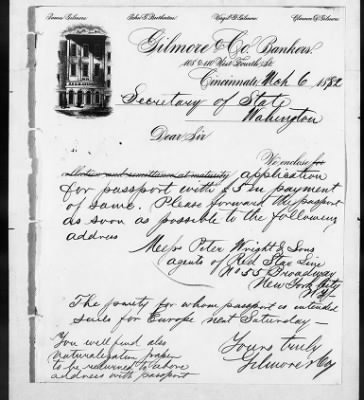 James Gilmore. John G. Brotherton Virgil G. Gilmore. Clarence G. Gilmore
Gilmore & Co. Bankers.
108 & 110 West Fourth St.
Cincinnati, Mch 6 1882
Secretary of State
Wahington
Dear Sir
We enclose for
collection and remittance at maturity application
for passport with $5 in payment
of same. Please forward the passport
as soon as possible to the following
address
Mess Peter Wright & Sons
agents of Red Star Line
No 55 Broadway
New York City
N.Y.
The party for whom passport is intended
sails for Europe next Saturday —
You will find also
naturalization paper
to be returned to above
address with passport
Yours truly
Gilmore & Co